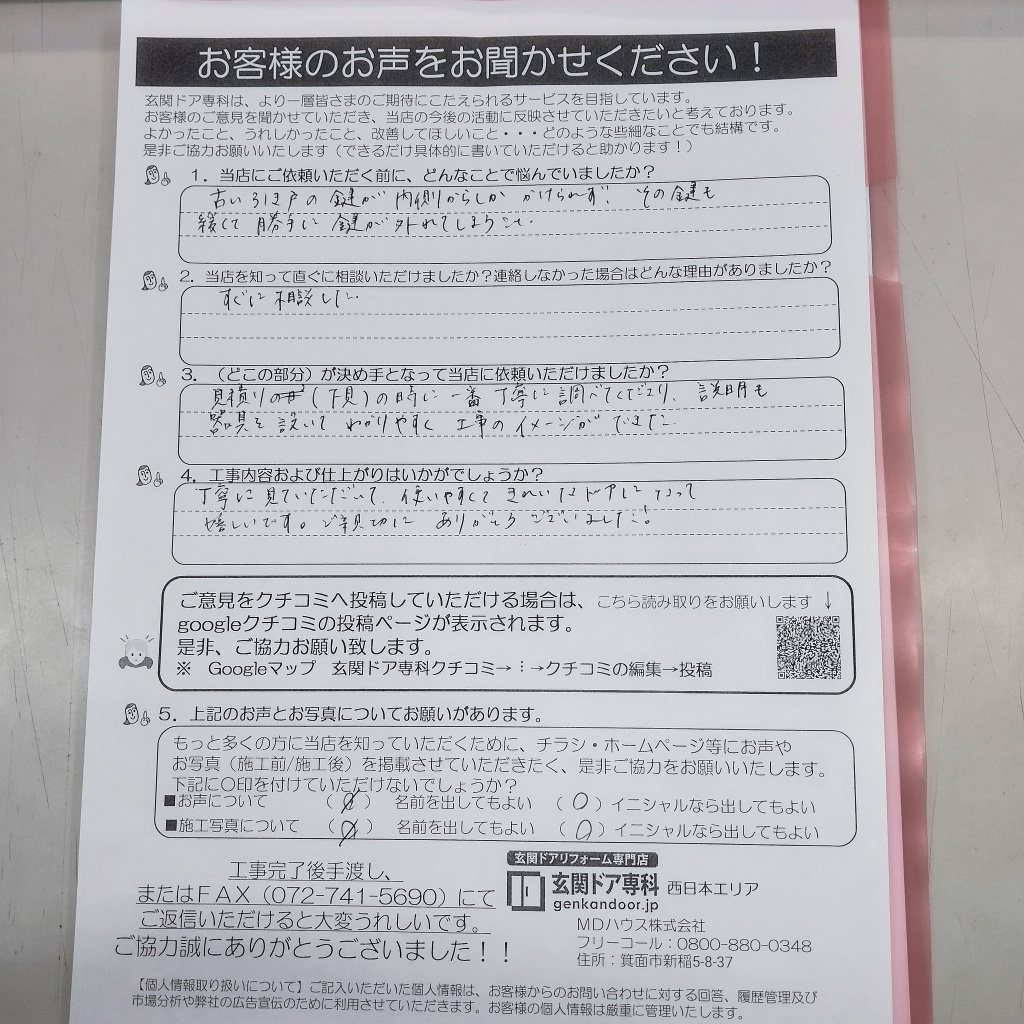 お客様のお声をお聞かせください！
玄関ドア専科は、より一層皆さまのご期待にこたえられるサービスを目指しています。
お客様のご意見を聞かせていただき、当店の今後の活動に反映させていただきたいと考えております。
よかったこと、うれしかったこと、改善してほしいこと・・・どのような些細なことでも結構です。
是非ご協力お願いいたします（できるだけ具体的に書いていただけると助かります！）
1．当店にご依頼いただく前に、どんなことで悩んでいましたか？
古い引き戸の鍵が内側からしかかけられず、その鍵も
緩くて勝手に鍵が外れてしまうこと。
2．当店を知って直ぐに相談いただけましたか？連絡しなかった場合はどんな理由がありましたか？
すぐに相談した。
3．（どこの部分）が決め手となって当店に依頼いただけましたか？
見積りの（下見）の時に一番丁寧に調べてくださり、説明も
器具を使いてわかりやすく工事のイメージができた。
4．工事内容および仕上がりはいかがでしょうか？
丁寧に見ていただいて、使いやすくてきれいなドアになって
嬉しいです。ご親切にありがとうございました！
ご意見をクチコミへ投稿していただける場合は、こちら読み取りをお願いします ↓
googleクチコミの投稿ページが表示されます。
是非、ご協力お願い致します。
※ Googleマップ 玄関ドア専科クチコミ→⋮→クチコミの編集→投稿
5．上記のお声とお写真についてお願いがあります。
もっと多くの方に当店を知っていただくために、チラシ・ホームページ等にお声や
お写真（施工前/施工後）を掲載させていただきたく、是非ご協力をお願いいたします。
下記に〇印を付けていただけないでしょうか？
■お声について （ ） 名前を出してもよい （ 〇 ）イニシャルなら出してもよい
■施工写真について （ ） 名前を出してもよい （ 〇 ）イニシャルなら出してもよい
工事完了後手渡し、
またはＦＡＸ（072-741-5690）にて
ご返信いただけると大変うれしいです。
ご協力誠にありがとうございました！！
玄関ドアリフォーム専門店
玄関ドア専科 西日本エリア
genkandoor.jp
ＭＤハウス株式会社
フリーコール：0800-880-0348
住所：箕面市新稲5-8-37
【個人情報取り扱いについて】ご記入いただいた個人情報は、お客様からのお問い合わせに対する回答、履歴管理及び
市場分析や弊社の広告宣伝のために利用させていただきます。お客様の個人情報は厳重に管理いたします。